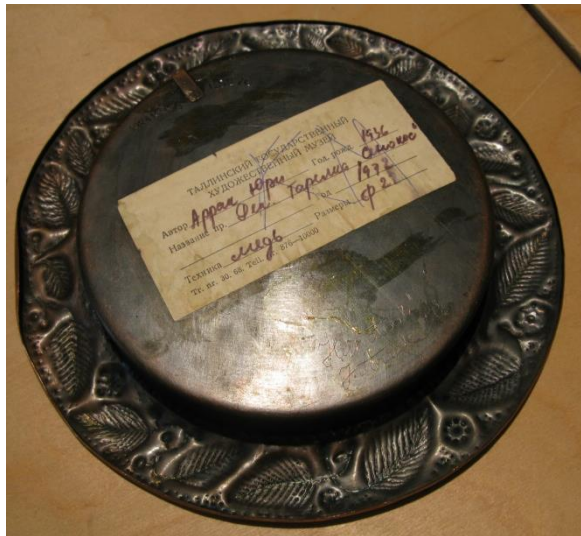 ТАЛЛИНСКИЙ ГОСУДАРСТВЕННЫЙ
ХУДОЖЕСТВЕННЫЙ МУЗЕЙ
Автор Аррак Юри Год рожд. 1936
Название пр. Дек. Тарелка
Год 1972
Техника медь Размеры ф 27
Tr. nr. 30. 68. Tell. 876—10000